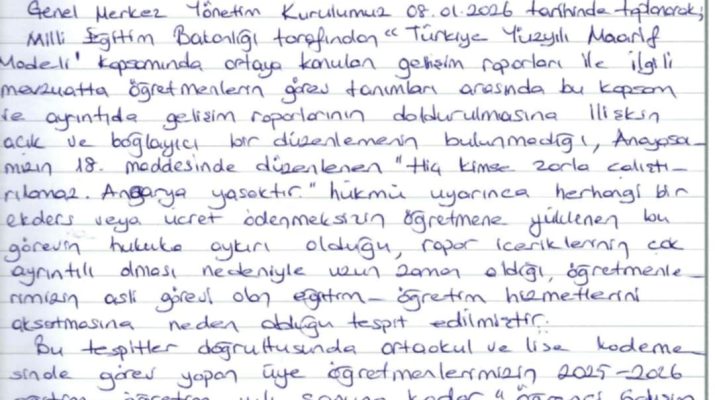 Genel Merkez Yönetim Kurulumuz 08.01.2026 tarihinde toplanarak,
Milli Eğitim Bakanlığı tarafından "Türkiye Yüzyılı Maarif
Modeli" kapsamında ortaya konulan gelişim raporları ile ilgili
mevzuatta öğretmenlerin görev tanımları arasında bu kapsam
ve ayrıntıda gelişim raporlarının doldurulmasına ilişkin
açık ve bağlayıcı bir düzenlemenin bulunmadığı, Anayasa-
mızın 18. maddesinde düzenlenen "Hiç kimse zorla çalıştı-
rılamaz. Angarya yasaktır." hükmü uyarınca herhangi bir
ekders veya ücret ödenmeksizin öğretmene yüklenen bu
görevin hukuka aykırı olduğu, rapor içeriklerinin çok
ayrıntılı olması nedeniyle uzun zaman aldığı, öğretmenle-
rimizin asli görevi olan eğitim-öğretim hizmetlerini
aksatmasına neden olduğu tespit edilmiştir.
Bu tespitler doğrultusunda ortaokul ve lise kademe-
sinde görev yapan üye öğretmenlerimizin 2025-2026